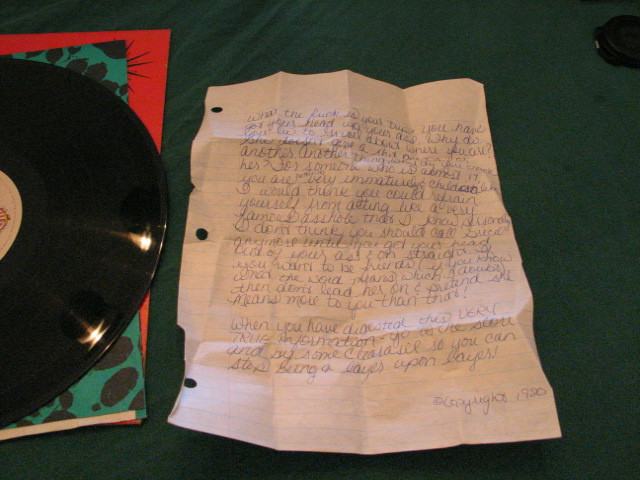 What the funk is your trip? You have
got your head up your ass. Why do
you lie to about where you are?
She doesn't give a shit
another. Another thing
her? For someone who is almost 17
you are very immature & childish
I would think you could refrain
yourself from acting like a very
famous asshole that I know personally
I don't think you should call
anymore until you got your head
out of your ass & on straight. If
you want to be friends (if you know
what the word means which I doubt)
then don't lead her on & pretend she
means more to you than that!
When you have digested this VERY
TRUE information - go to the store
and buy some Clearasil so you can
stop being a layer upon layer!
©Copyright 1980